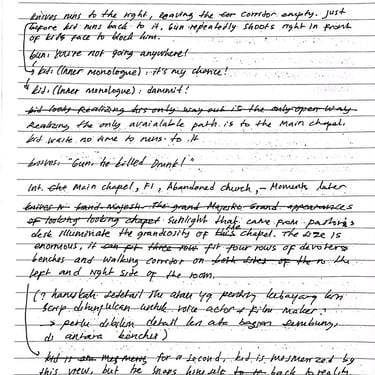 knives runs to the right, leaving the corridor empty. Just
before kid runs back to it, Gun repeatedly shoots right in front
of kids face to block him.
Gun: You're not going anywhere!
kid: (Inner monologue): it's my chance!
kid: (Inner monologue): dammit!
kid looks Realizing his only way out is the only open way
Realizing the only avaialable path is to the Main chapel,
kid waste no time to runs to it
knives: "Gun, he killed Drunk!"
Int. the Main chapel, F1, Abandoned church, – Moments later
of looking looking chapel sunlight that came from pastor's
desk illuminate the grandiosity of this chapel. The size is
enormous, it can fit three rows fit four rows of devoters
benches and walking corridor on both sides of the
left and right side of the room.
(? haruskah sedetail itu atau yg penting kebayang krn
scrip ditunjukan untuk voice actor & film maker?
→ perlu dibikin detail krn ada bagian sembunyi
di antara benches)
for a second, kid is mesmerized by
this view, but he snaps himself to back to reality.